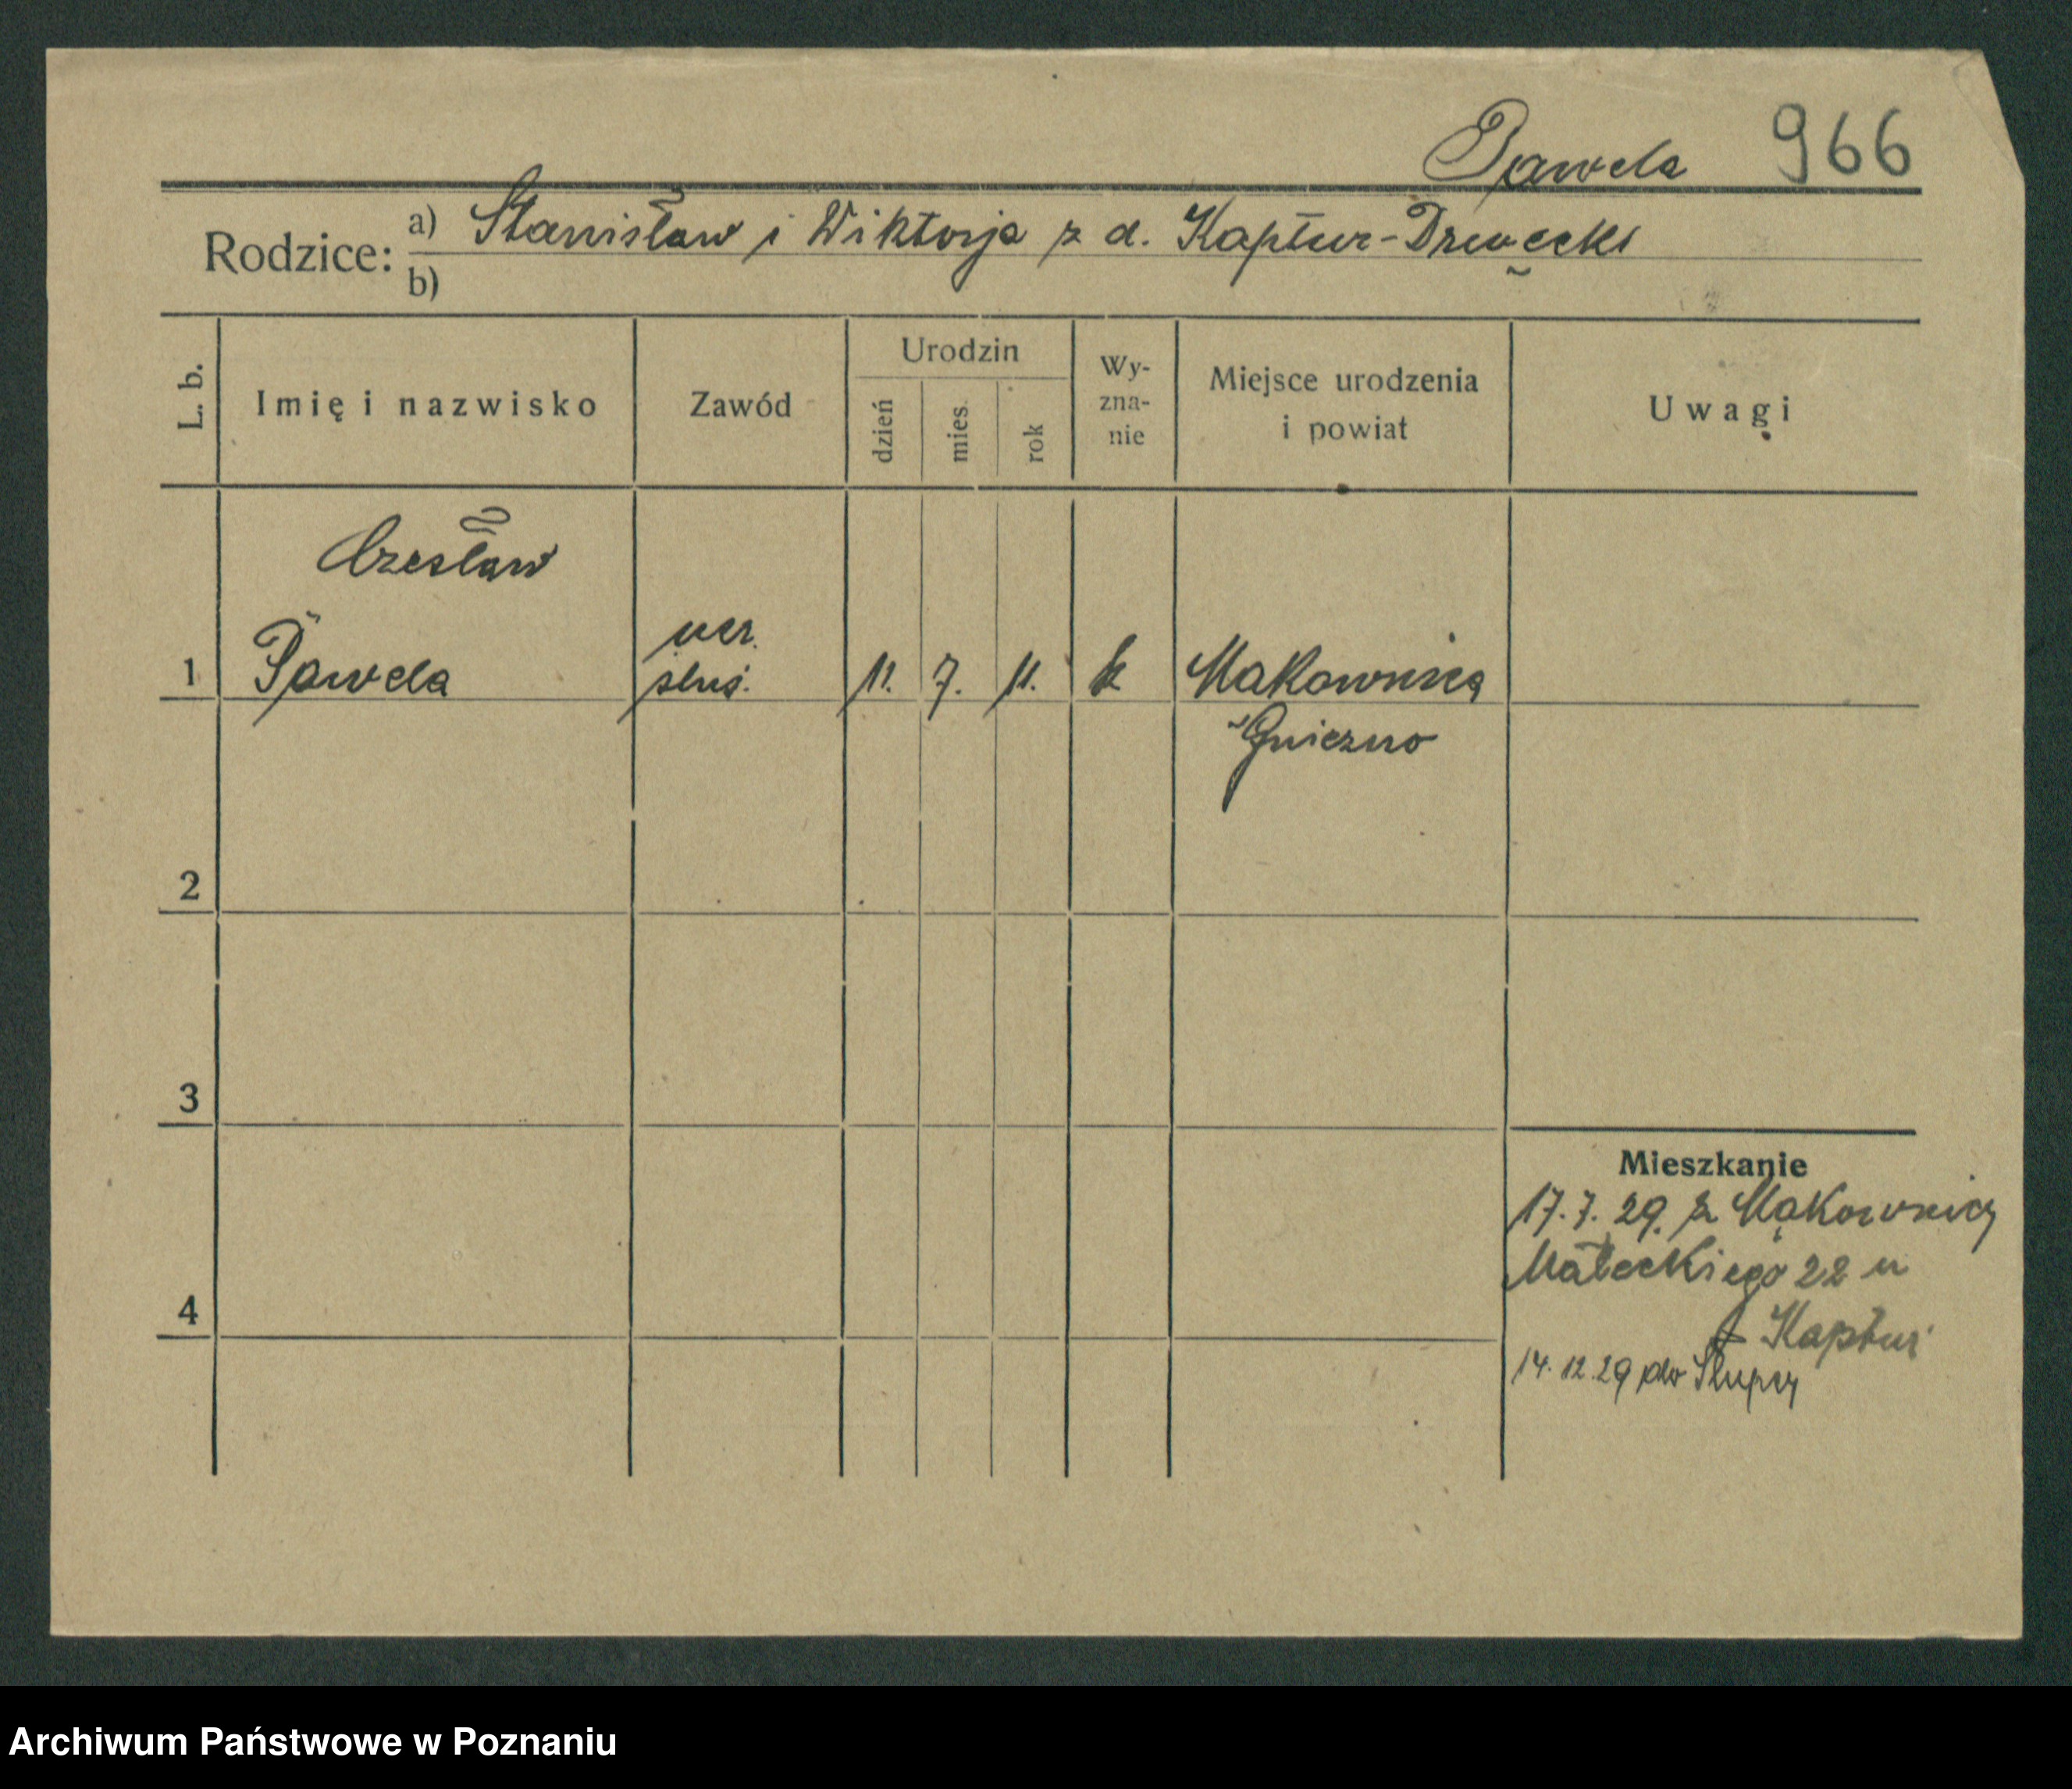 Pawela 966
Rodzice: a) Stanisław i Wiktorja z d. Kaptur-Drzewecki
b)
L. b. Imię i nazwisko Zawód Urodzin dzień mies. rok Wy-zna-nie Miejsce urodzenia i powiat Uwagi
Czesław
ucz.
1 Pawela ślus. 11. 7. 11. k Makownica
Gniezno
2
3
Mieszkanie
17.7.29. z Mąkownicy
Małeckiego 22 u
4
Kaptur
14.12.29 do Słupcy
Archiwum Państwowe w Poznaniu